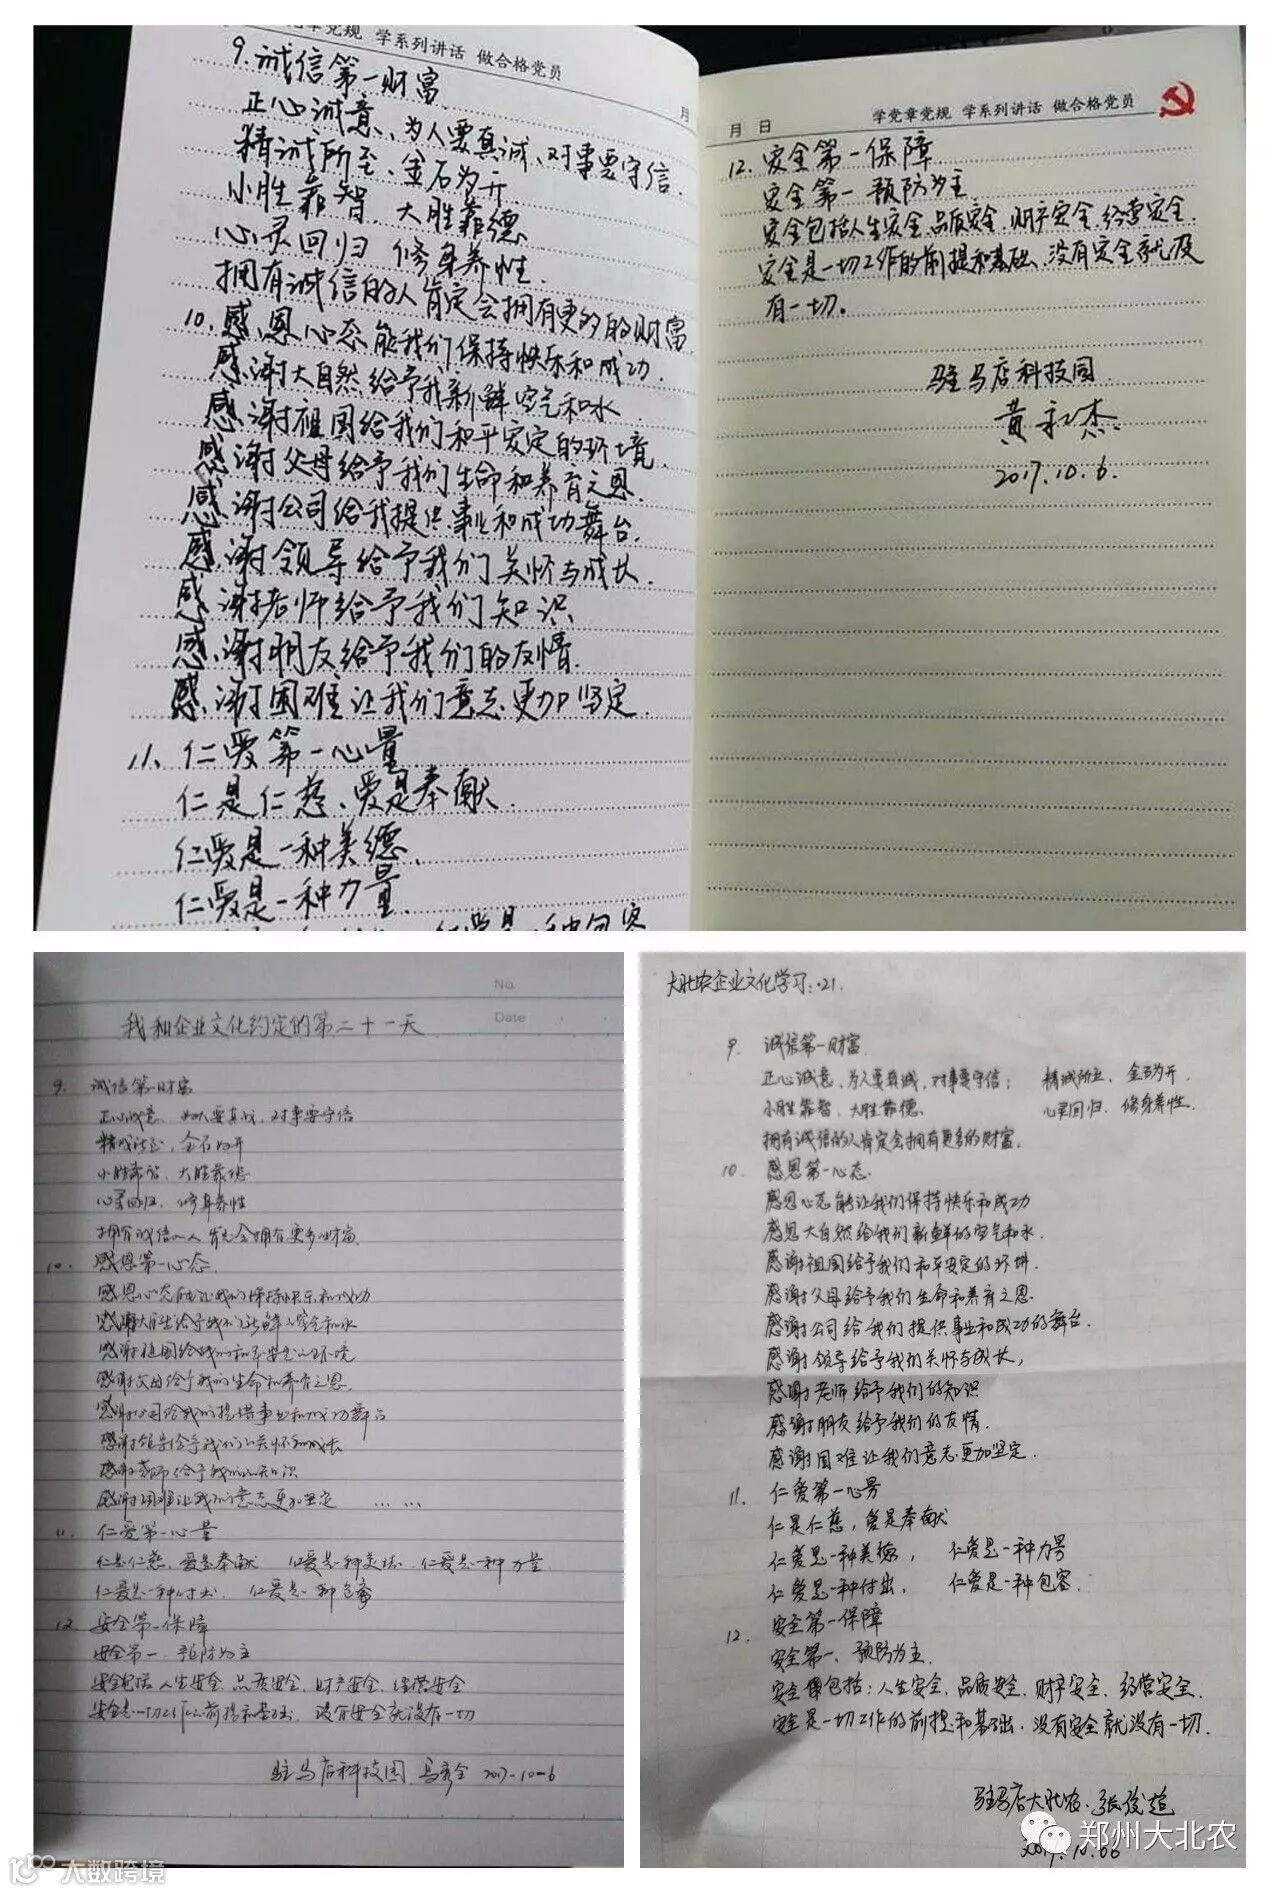 党章党规 学系列讲话 做合格党员
月
9.诚信第一财富
正心诚意、为人要真诚、对事要守信.
精诚所至、金石为开
小胜靠智、大胜靠德
心灵回归 修身养性.
拥有诚信的人肯定会拥有更的的财富
10.感恩心态能我们保持快乐和成功.
感谢大自然给予我新鲜空气和水
感谢祖国给我们和平安定的环境
感谢父母给予我们生命和养育之恩.
感谢公司给我提供事业和成功舞台.
感谢领导给予我们关怀与成长.
感谢老师给予我们知识
感谢朋友给予我们的友情.
感谢困难让我们意志更加坚定.
11、仁爱第一心量
仁是仁慈、爱是奉献.
仁爱是一种美德.
仁爱是一种力量.
仁爱是一种包容
月 日 学党章党规 学系列讲话 做合格党员
12.安全第一保障.
安全第一 预防为主
安全包括人生安全.品质安全.财产安全.经营安全.
安全是一切工作的前提和基础.没有安全就没
有一切。
驻马店科技园
2017.10.6.
No.
Date
我和企业文化约定的第二十一天
9. 诚信第一财富
正心诚意、为人要真诚,对事要守信
精诚所至,金石为开
小胜靠智、大胜靠德
心灵回归、修身养性
拥有诚信的人肯定会拥有更多财富.
10. 感恩第一心态.
感恩心态能让我们保持快乐和成功
感谢大自然给予我们新鲜的空气和水
感谢祖国给我们和平安定的环境
感谢父母给予我们生命和养育之恩.
感谢公司给我们提供事业和成功舞台
感谢领导给予我们的关怀和成长
感谢老师给予我们的知识
感谢困难让我们意志更加坚定 ……
11. 仁爱第一心量
仁是仁慈,爱是奉献 仁爱是一种美德.仁爱是一种力量.
仁爱是一种付出. 仁爱是一种包容
12. 安全第一保障
安全第一、预防为主
安全包括人生安全、品质安全、财产安全、经营安全
安全是一切工作的前提和基础,没有安全就没有一切
驻马店科技园 2017-10-6
大北农企业文化学习:21.
9. 诚信第一财富.
正心诚意、为人要真诚,对事要守信; 精诚所至、金石为开.
小胜靠智、大胜靠德、 心灵回归、修身养性.
拥有诚信的人肯定会拥有更多的财富.
10. 感恩第一心态.
感恩心态能让我们保持快乐和成功
感恩大自然给我们新鲜的空气和水.
感谢祖国给予我们和平安定的环境.
感谢父母给予我们生命和养育之恩.
感谢公司给我们提供事业和成功的舞台.
感谢领导给予我们关怀与成长,
感谢老师给予我们的知识
感谢朋友给予我们的友情.
感谢困难让我们意志更加坚定.
11. 仁爱第一心量
仁是仁慈,爱是奉献
仁爱是一种美德, 仁爱是一种力量
仁爱是一种付出, 仁爱是一种包容.
12. 安全第一保障
安全第一、预防为主.
安全包括:人生安全、品质安全、财产安全、经营安全.
安全是一切工作的前提和基础、没有安全就没有一切.
驻马店大北农.张俊超
2017.10.06
郑州大北农
大数跨境